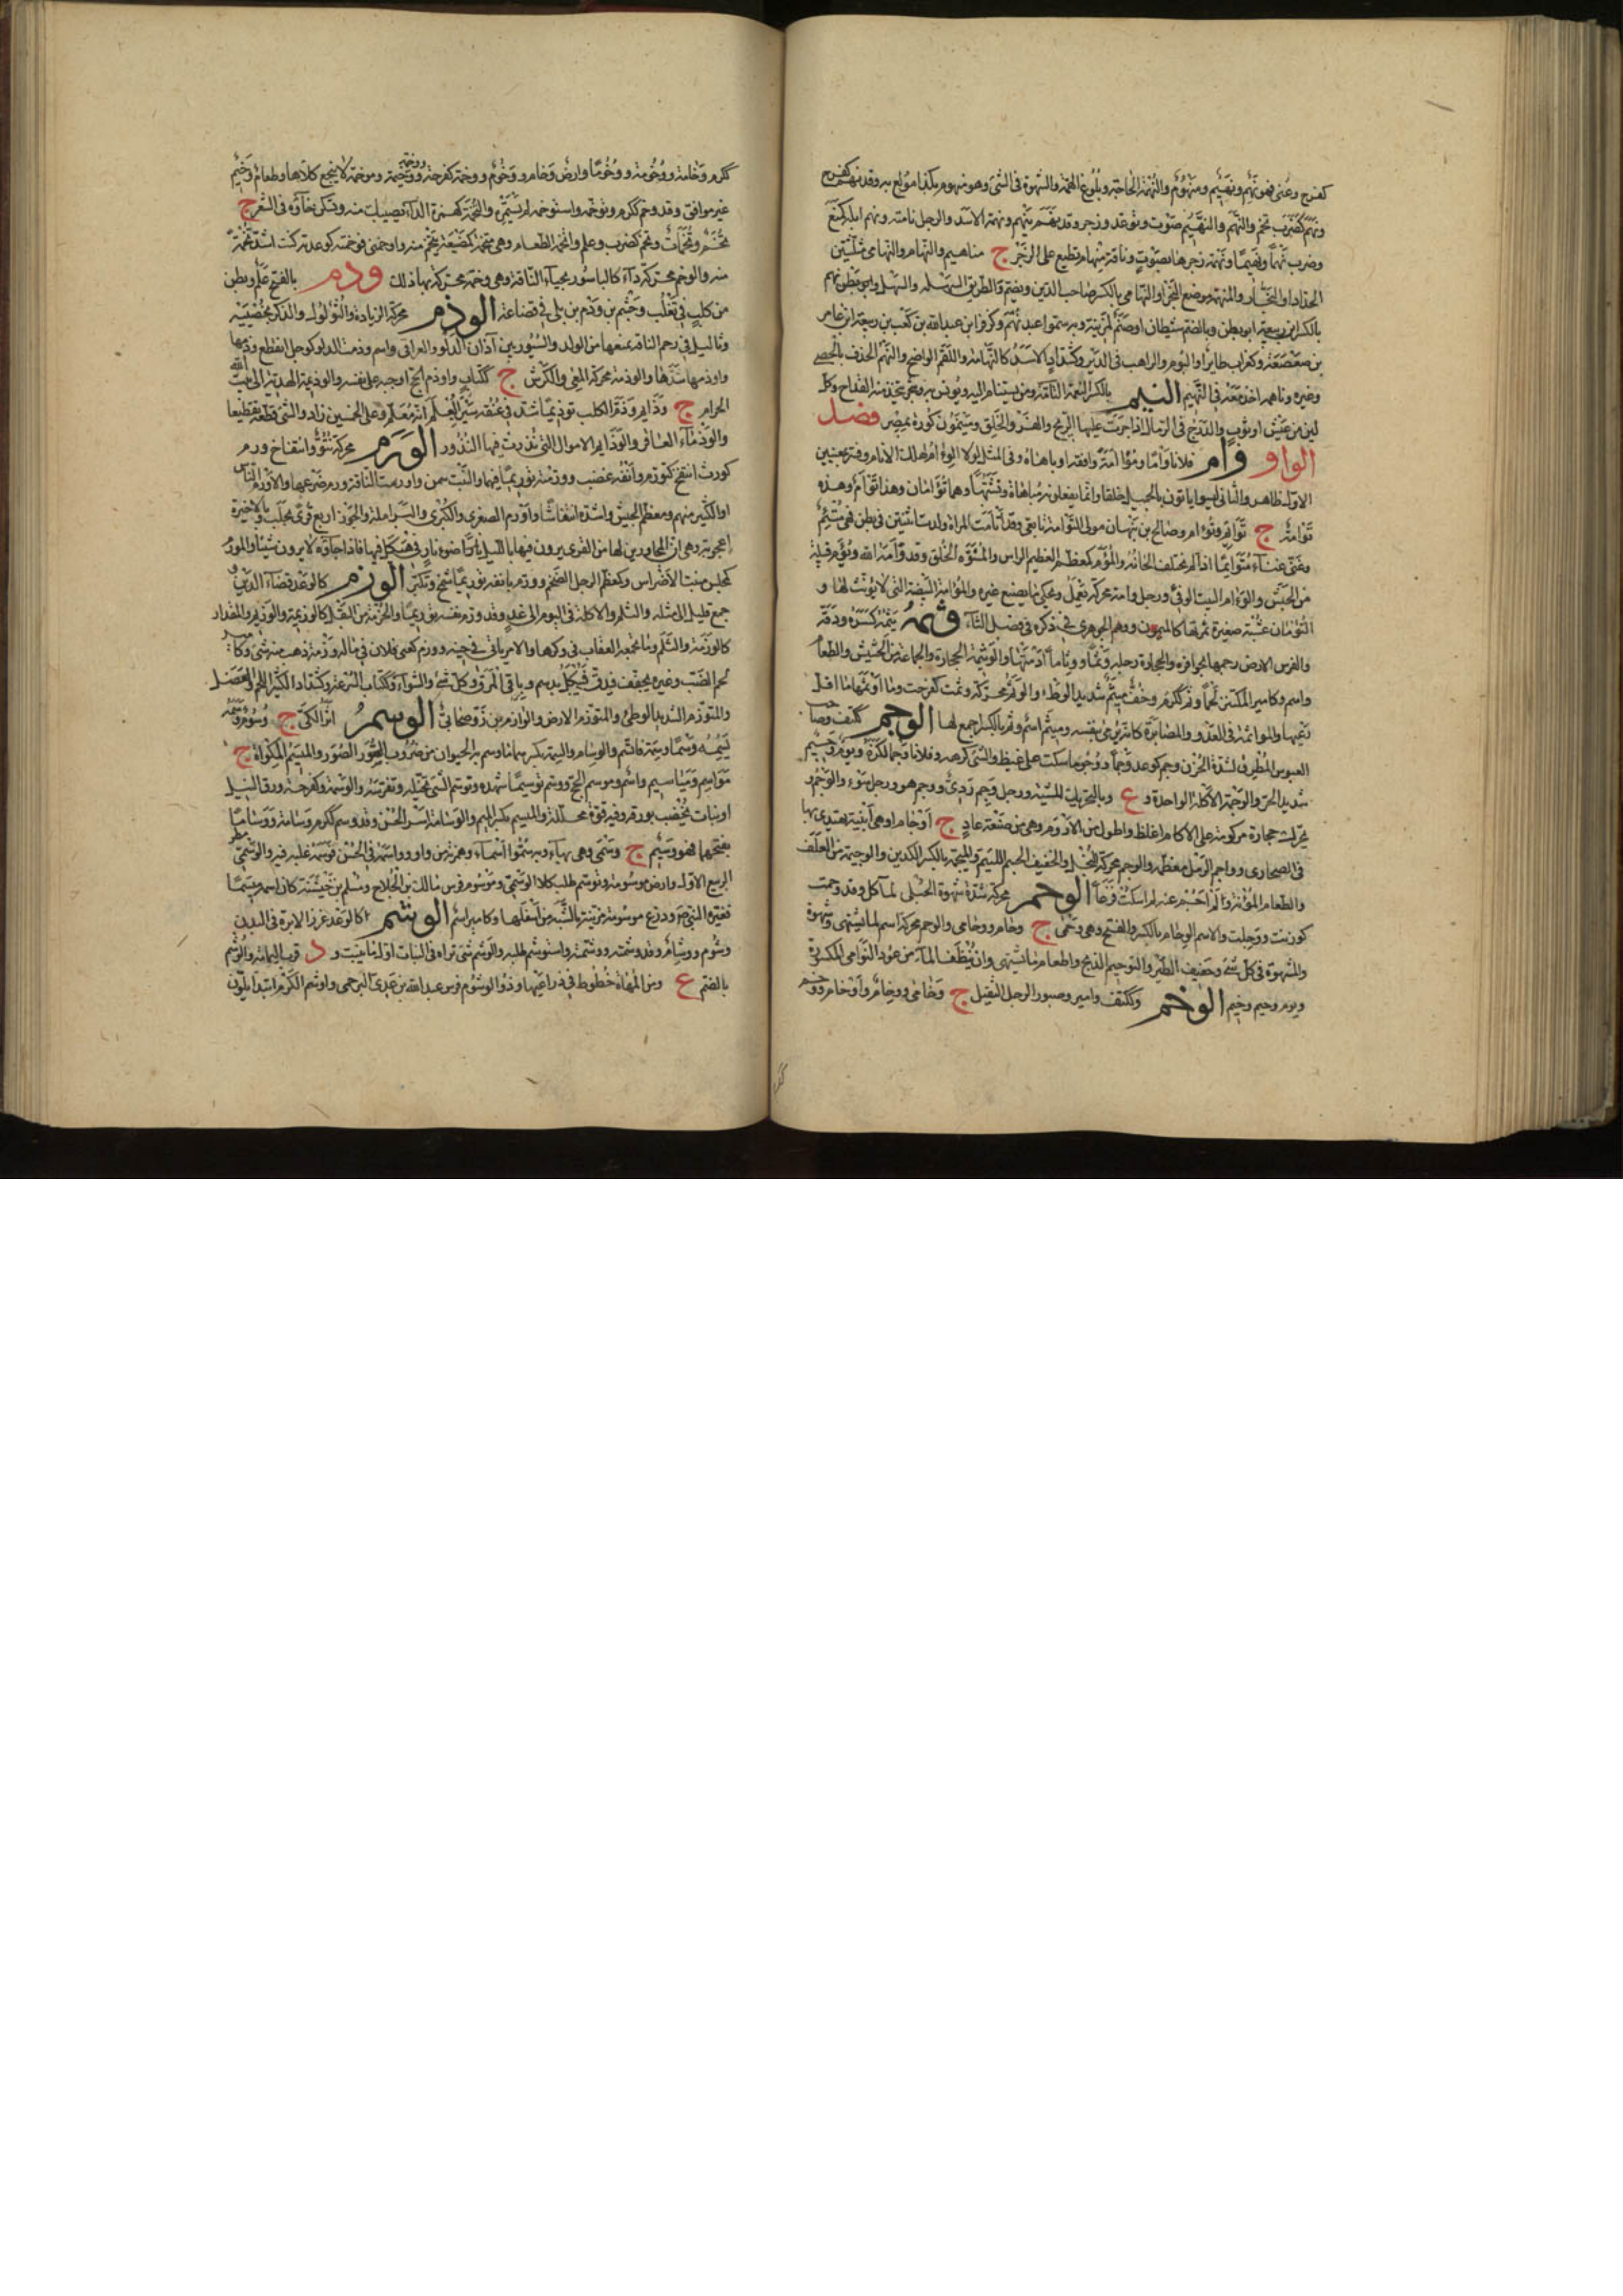 كفرح وعنى فهو نهم ونهيم ومنهوم والنهمة الحاجة وبلوغ الهمة والشهوة فى الشئ وهو منهوم بكذا مولع به وقد نهم كفرح
ونهم كضرب نحم والنهم والنهيم صوت وتوعد وزجر وقد نهم ينهم ونهمة الاسد والرجل نامته ونهم ابله كمنع
وضرب نهما ونهيما ونهمة زجرها بصوت وناقة منهام تطيع على الزجر ج مناهيم والنهام والنهامى مثلثين
الحداد او النجار والمنهمة موضع النجر او النهامى بالكسر صاحب الدير ويضم والطريق السهل وابو بطن نهم
بالكسر ابن ربيعة ابو بطن وبالضم شيطان او صنم لمزينة وبه سموا عبد نهم وكزفر ابن عبدالله بن كعب بن ربيعة ابن عامر
بن صعصعة وكغراب طاير او البوم والراهب فى الدير وكشداد الاسد كالنهامة واللقم الواضح والنهم الحذف بالحصى
وغيره وناهمه اخذ معه فى النهيم النيم بالكسر النعمة التامة ومن يستنام اليه ويونس به وشجر تتخذ منه القداح وكل
لين من عيش او ثوب والدرج فى الرمال اذا جرت عليها الريح والفرو الخلق ومينمون كورة بمصر فصل
الواو وام فلانا واما ومواءمة وافقه او باهاه وفى المثل لولا الوئام لهلك الانام وفسر بمعنيين
الاول ظاهر والثانى ليسوا ياتون بالجميل خلقا وانما يفعلونه مباهاة وتشبها وهما توامان وهذا توام وهذه
توامة ج توايم وتوام وصالح بن نبهان مولى التوامة تابعى وقد اتامت المراة ولدت اثنتين فى بطن فهى متيم
وغنى غناء متوايما اذا لم تختلف الحانه والموام كمعظم العظيم الراس والمشوه الخلق وقد وامه الله وتوام قبيلة
من الحبش والوام البيت الدفئ ورجل وامة محركة يعمل ويحكى ما يصنع غيره والموامة البيضة التى لا قونس لها و
التوامان عشبة صغيرة ثمرتها كالكمون ووهم الجوهرى فى ذكره فى فصل التاء وثمه يثمه كسره ودقه
والفرس الارض رجمها بحوافره والحجارة رجله وثما ووثاما ادمتها والوثيمة الحجارة والجماعة من الحشيش والطعام
واسم وكامير المكتنز لحما وثم ككرم وخف ميثم شديد الوطء والوثم محركة وثمت كفرحت وما اوثمها ما اقل
رعيها والمواثمة فى العدو والمضابرة كانه يرمى بنفسه وميثم اسم وثم بالكسر اجمع لها الوجم ككتف وصاحب
العبوس المطرق لشدة الحزن وجم كوعد وجما ووجوما سكت على غيظ والشئ كرهه وفلانا وجما لكزه ويوم وجيم
شديد الحر والوجمة الاكلة الواحدة و ع وبالتحريك المسبة ورجل وجم ردئ ووجم هو ورجل سوء والوجم و
يحرك حجارة مركومة على الاكام اغلظ واطول من الاروم وهى من صنعة عاد ج اوجام او هى ابنية يهتدى بها
فى الصحارى وواجم الرمل معظمه والوجم محركة البخيل والخفيف الجسم اللئيم والميجمة بالكسر الكدين والوجيمة من العلف
والطعام المؤنة ولم اجم عنه لم اسكت فزعا الوحم محركة شدة شهوة الحبلى لماكل وقد وحمت
كورثت ووجلت والاسم الوحام بالكسر والفتح وهى وحمى ج وحام ووحامى والوحم محركة اسم لما يشتهى وشهوة
والشهوة فى كل شئ وحفيف الطير والتوحيم الذبح واطعام ما تشتهى وان ينظف الماء من عود النوامى المكسرة
ويوم وحيم وخيم الوخم وككتف وامير وصبور الرجل الثقيل ج وخامى ووخام واوخام ووخم
ككرم وخامة ووخومة ووخوما وارض وخام ووخوم ووخمة كفرحة ووخيمة وموخمة لا ينجع كلاها وطعام وخيم
غير موافق وقد وخم ككرم وتوخمه واستوخمه لم يستمره والتخمة كهمزة الداء يصيبك منه وتسكن خاؤه فى الشعر ج
تخم وتخمات وتخم كضرب وعلم واتخم الطعام وهى متخمة كمصنعة يتخم منه وواخمنى فوخمته كوعدته كنت اشد تخمة
منه والوخم محركة داء كالباسور بحياء الناقة وهى وخمة محركة بها ذلك ودم بالفتح علم وبطن
من كلب فى تغلب وجشم بن ودم بن بلى فى قضاعة الوذم محركة الزيادة والثولول والذكر بخصييه
وثاليل فى رحم الناقة تمنعها من الولد والسيور بين اذان الدلو والعراقى واسم وذمت الدلو كوجل انقطع وذمها
واوذمها شدها والوذمة محركة المعى والكرش ج ككتاب واوذم الحج اوجبه على نفسه والوذيمة الهدية الى بيت الله
الحرام ج وذايم ووذم الكلب توذيما شد فى عنقه سيرا ليعلم انه معلم وعلى الخمسين زاد والشئ قطعه تقطيعا
والوذماء العاقر والوذايم الاموال التى نذرت فيها النذور الورم محركة نتو وانتفاخ ورم
كورث انتفخ كتورم وانفه غضب وورمته توريما فيهما والنبت سمن واورمت الناقة ورم ضرعها والاورم الناس
او الكثير منهم ومعظم الجيش واشده انتفاشا واورم الصغرى والكبرى والبرامكة والجوز اربع قرى بحلب وبالاخيرة
اعجوبة وهى ان المجاورين لها من القرى يرون فيها بالليل ضوء نار فى هيكل فيها فاذا جاوه لا يرون شيئا والمورم
كمجلس منبت الاضراس وكمعظم الرجل الضخم وورم بانفه توريما شمخ وتكبر الوزم كالوعد قضاء الدين و
جمع قليل الى مثله والثلم والاكلة فى اليوم الى غد وقد وزم نفسه توزيما والحزمة من البقل كالوزيمة والوزيم والمقدار
كالوزمة والثلم وما تجمعه العقاب فى وكرها والامر ياتى فى حينه ووزم كعنى فلان فى ماله وزمة ذهب منه شئ وكا
لحم الضب وغيره يجفف فيدق فيوكل بدسم وباقى المرق وكل شئ والشواء وككتاب السرعة وكشداد الكثير اللحم والعضل
والمتوزم الشديد الوطئ والمتوزم الارض والوازم بن زر صحابى الوسم اثر الكى ج وسوم وسمه
يسمه وسما وسمة فاتسم والوسام والسمة بكسرهما ما وسم به الحيوان من ضروب الصور والميسم المكواة ج
مواسم ومياسم واسم وموسم الحج ووسم توسيما شهده وتوسم الشئ تخيله وتفرسه والوسمة وكفرحة ورق النيل
او نبات يخضب بورقه وفيه قوة محللة والميسم بكسر الميم والوسامة اثر الحسن وقد وسم ككرم وسامة ووساما
بفتحهما فهو وسيم ج وسمى وهى بهاء وبه سموا اسماء وهمزته من واو وواسمه فى الحسن فوسمه غلبه فيه والوسمى مطر
الربيع الاول وارض موسومة وتوسم طلب كلا الوسمى وموسوم فرس مالك بن الجلاح ومسلم بن خيشنة كان اسمه ميسما
فغيره النبى ص ودرع موسومة مزينة بالشبه من اسفلها وكامير اسم الوشم كالوعد غرز الابرة فى البدن
وشوم ووشام وقد وشمته ووشمته واستوشم طلبه والوشم شئ تراه فى النبات اول ما ينبت و د قرب اليمامة والوشوم
بالضم ع ومن المهاة خطوط فى ذراعيها وذو الوشوم فرس عبدالله بن عدى البرجمى واوشم الكرم ابتدا يلون